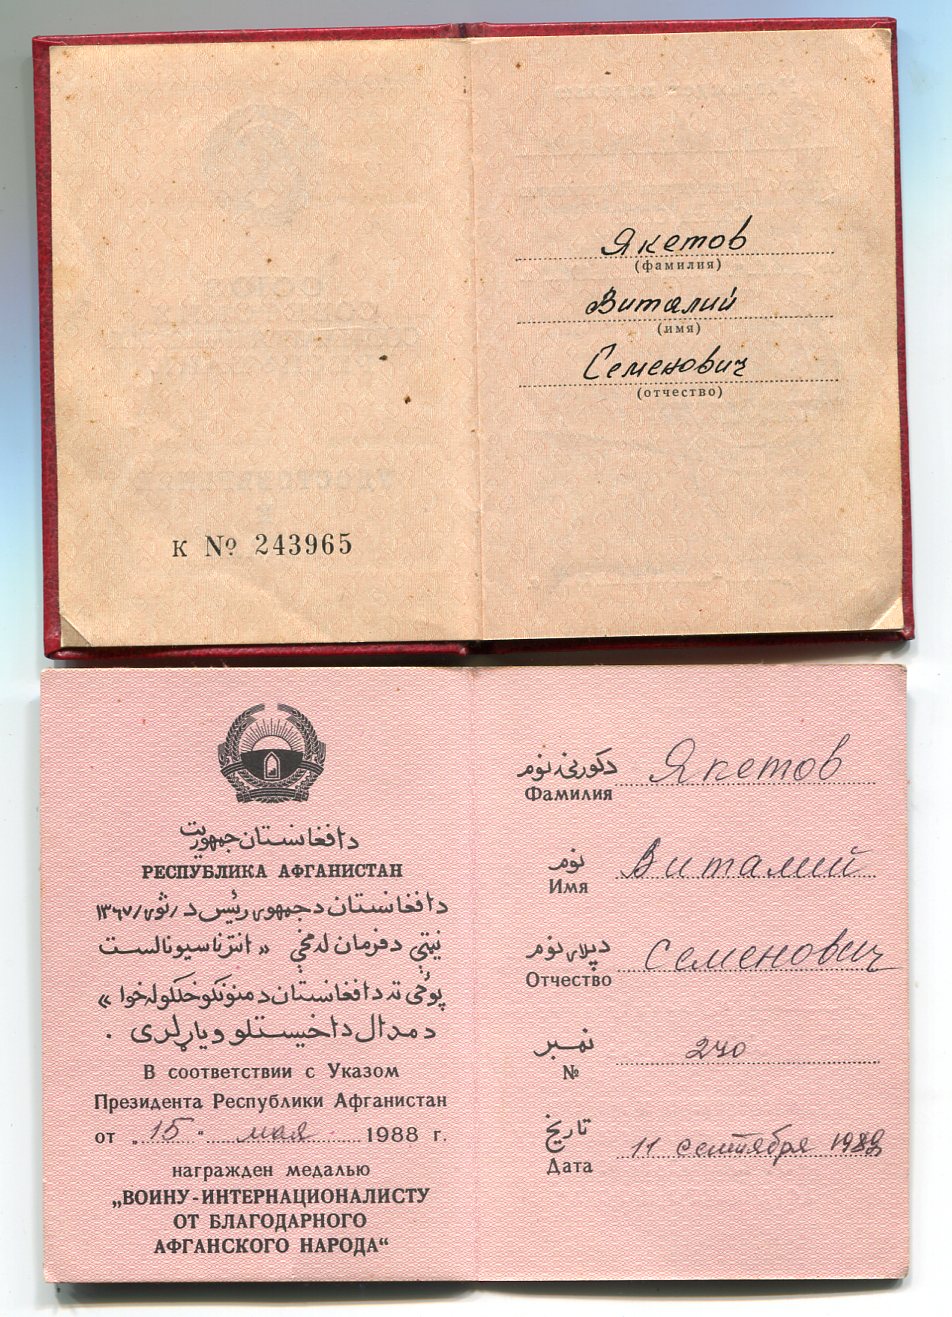 Якетов
(фамилия)
Виталий
(имя)
Семенович
(отчество)
К № 243965
د افغانستان جمهوریت
РЕСПУБЛИКА АФГАНИСТАН
د افغانستان د جمهور رئیس د /ثور/ ۱۳۶۷
نیټې د فرمان له مخې « انترناسیونالست
پوځی ته د افغانستان د منونکو خلکو له خوا »
د مدال د اخیستلو ویاړ لری .
В соответствии с Указом
Президента Республики Афганистан
от „15“ мая 1988 г.
награжден медалью
„ВОИНУ-ИНТЕРНАЦИОНАЛИСТУ
ОТ БЛАГОДАРНОГО
АФГАНСКОГО НАРОДА“
د کورنۍ نوم
Фамилия Якетов
نوم
Имя Виталий
د پلار نوم
Отчество Семенович
نمبر
№ 240
تاریخ
Дата 11 сентября